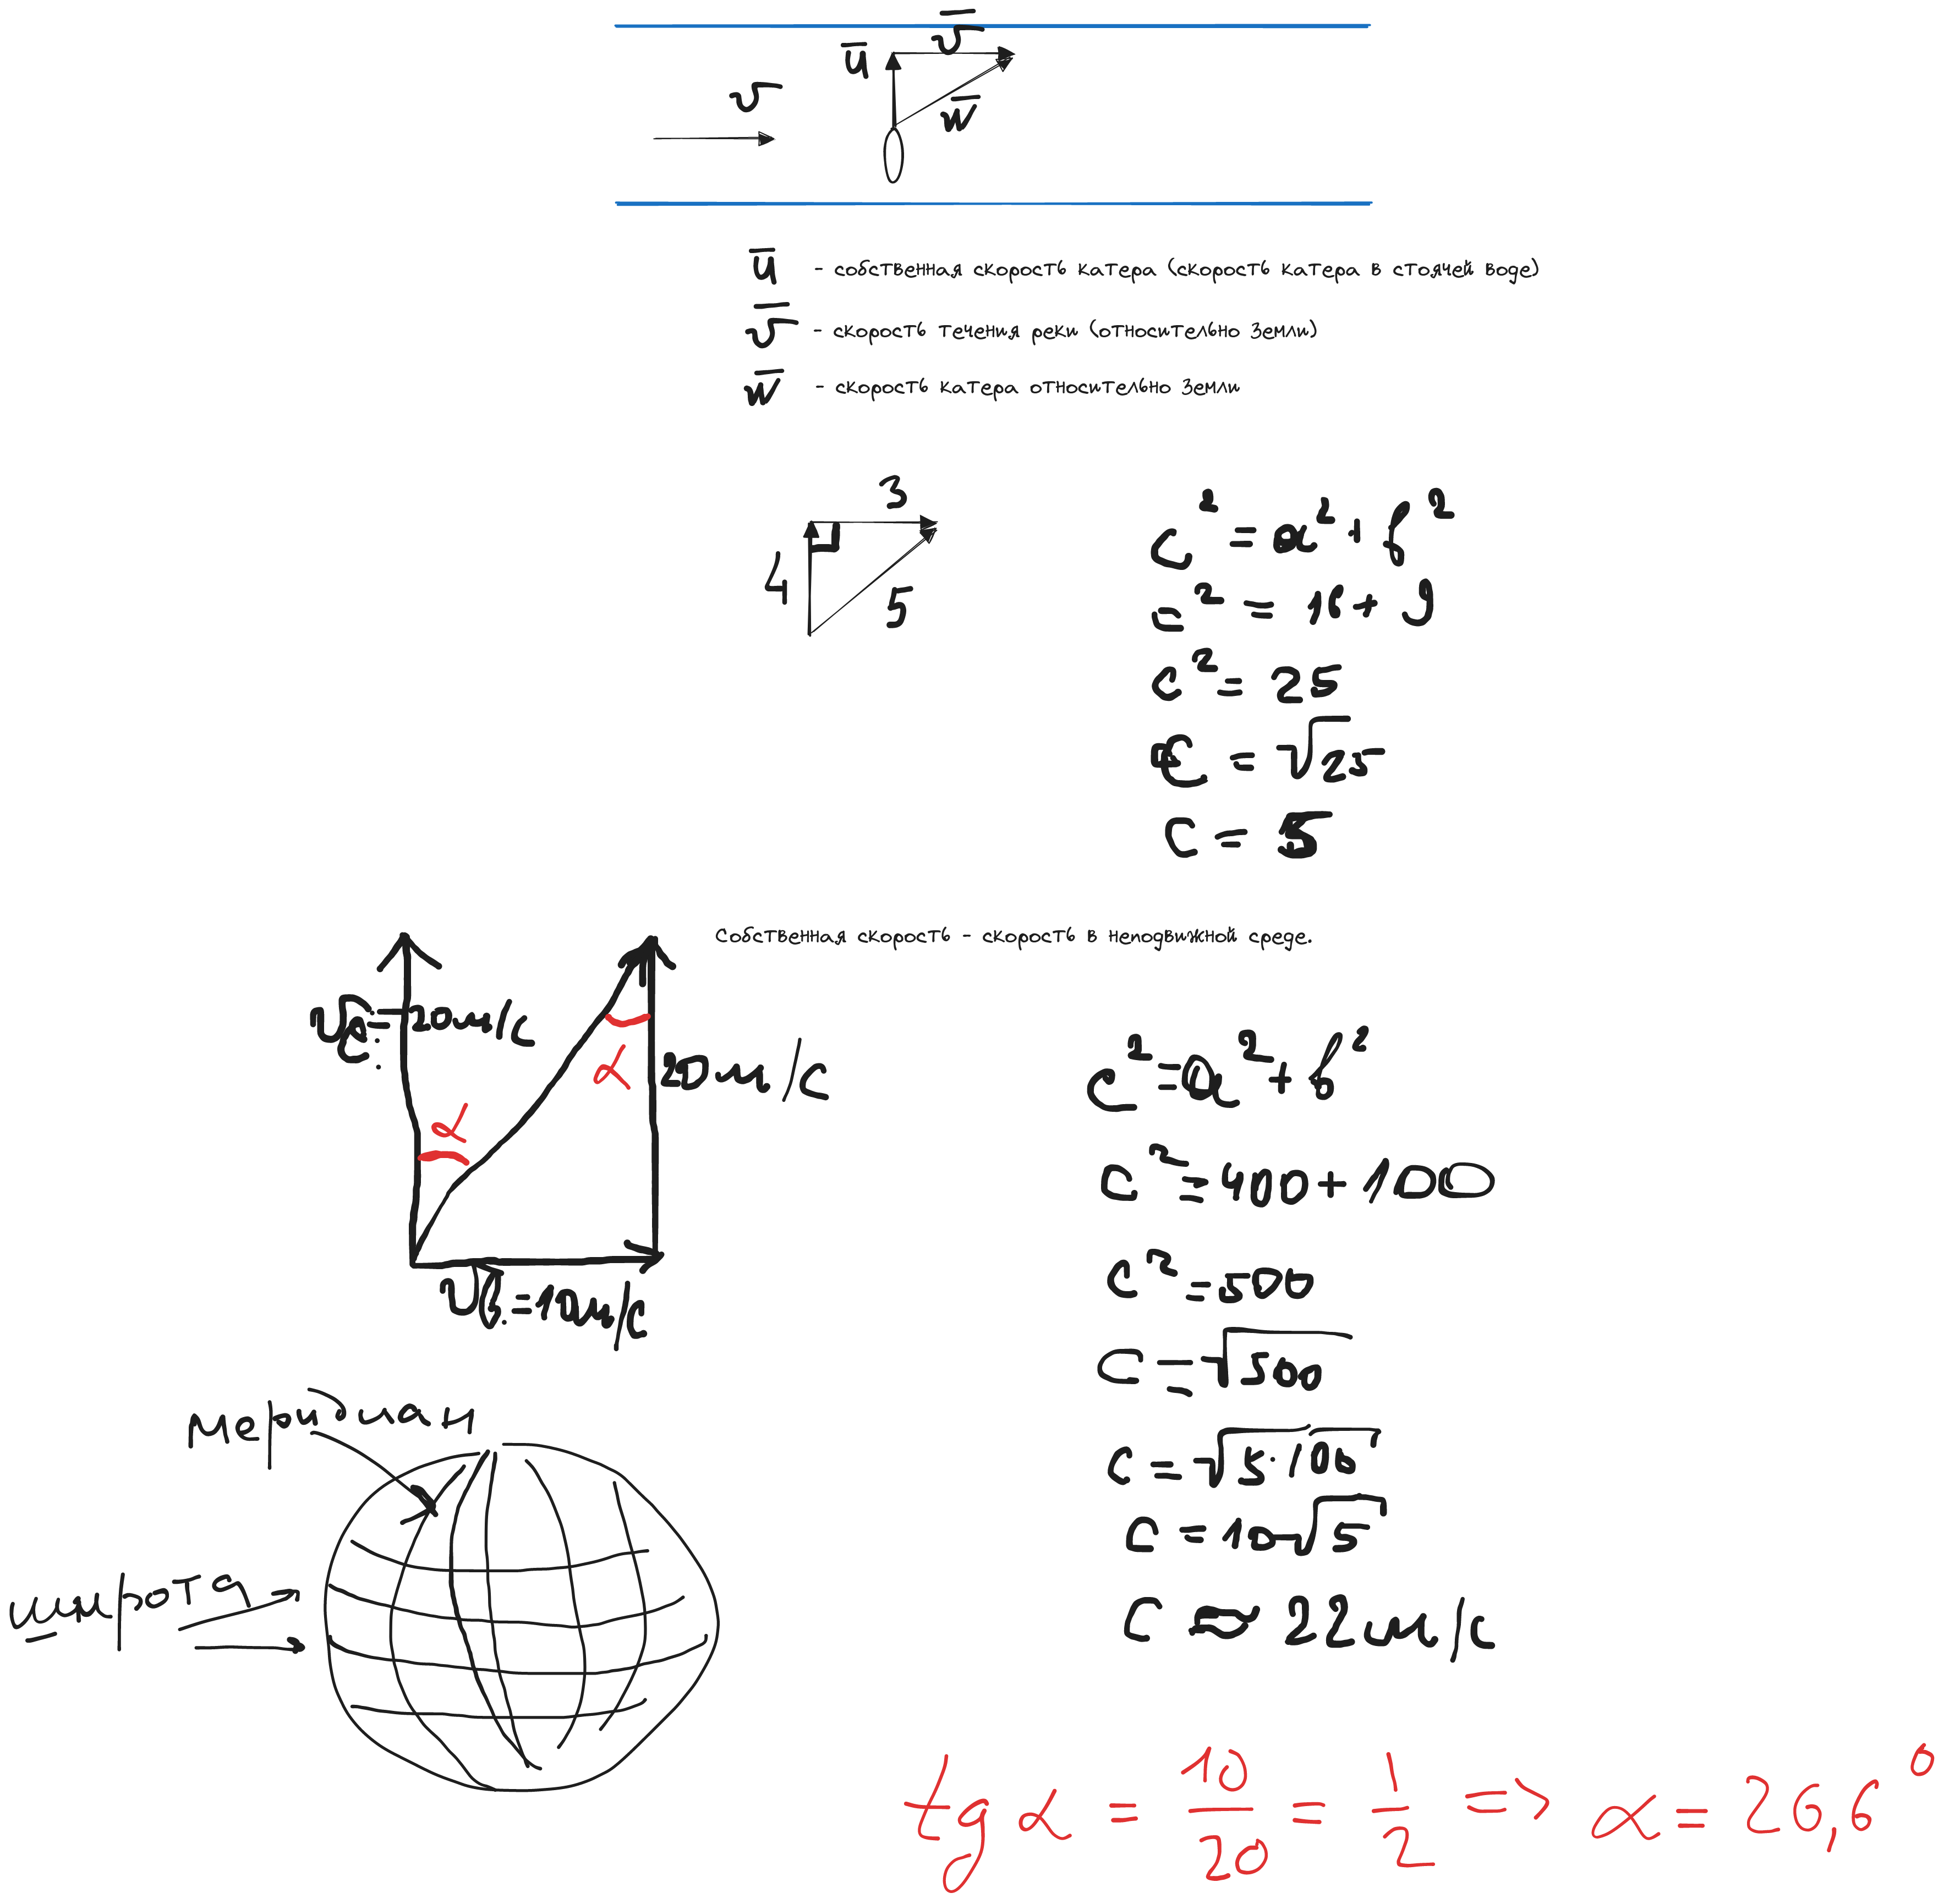 v̅
u̅
v
w̅
u̅ - собственная скорость катера (скорость катера в стоячей воде)
v̅ - скорость течения реки (относительно Земли)
w̅ - скорость катера относительно Земли
3
4
5
c² = a² + b²
c² = 16 + 9
c² = 25
c = √25
c = 5
Собственная скорость - скорость в неподвижной среде.
= 20 м/с
α
α
20 м/с
vв. = 10 м/с
c² = a² + b²
c² = 400 + 100
c² = 500
c = √500
c = √5·100
c = 10√5
c ≈ 22 м/с
меридиан
широта
tg α = 10/20 = 1/2 => α = 26,6°